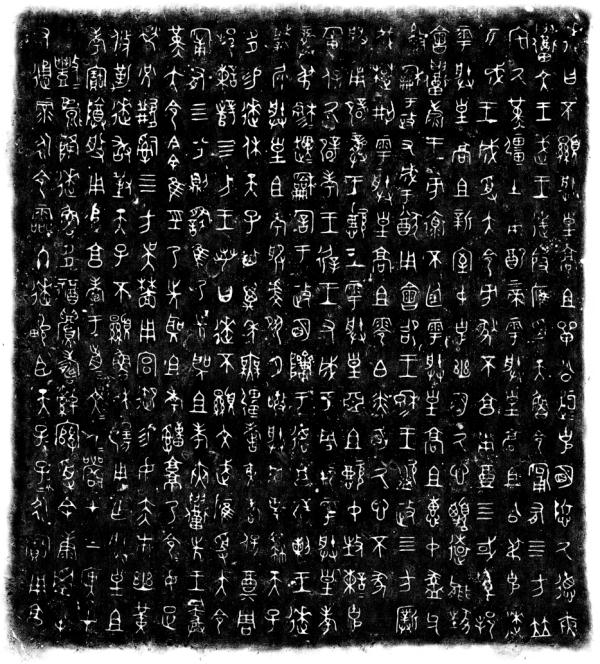 逨曰不顯朕皇高且單公桓桓克明慎厥德夾
召文王武王達殷膺受天魯令匍有四方並
宅厥堇疆土用配上帝雩朕皇高且公弔克逨
匹成王成受大令方狄不享用奠四或萬邦
雩朕皇高且新室中克幽明厥心柔遠能邇
會召康王方懷不廷雩朕皇高且惠中盠父
盭龢于政又成于猷用會邵王穆王盜政四方撲
伐楚荊雩朕皇高且零白粦明厥心不墜
服用辟龏王懿王雩朕皇亞且懿中致諫諫克
匍保厥辟考王徲王又成于周邦雩朕皇考
龏弔穆穆趩趩龢詢于政明濟于德享辟剌王逨
肇纘朕皇且考服虔夙夕敬朕死事肆天子
多易逨休天子其萬年無疆耆黃耇保奠周
邦諫辥四方王若曰逨不顯文武膺受大令
匍有四方則繇隹乃先聖且考夾召先王爵
堇大令今余隹巠乃先聖且考申就乃令令女疋
榮兌兼司四方虞林用宮御易女赤巿幽黃
攸勒逨敢對天子不顯魯休揚用作朕皇且
考寶尊彝用追享孝于前文人前文人嚴在上廙在下
豐豐勃勃降逨魯多福眉壽綽綰授余康娛純
又通彔永令霝冬逨畯臣天子子子孫孫永寶用享